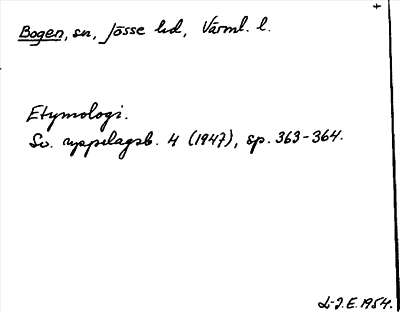 +
Bogen, sn, Jösse hd, Värml. l.
Etymologi.
Sv. uppslagsb. 4 (1947), sp. 363-364.
L-J.E. 1954.